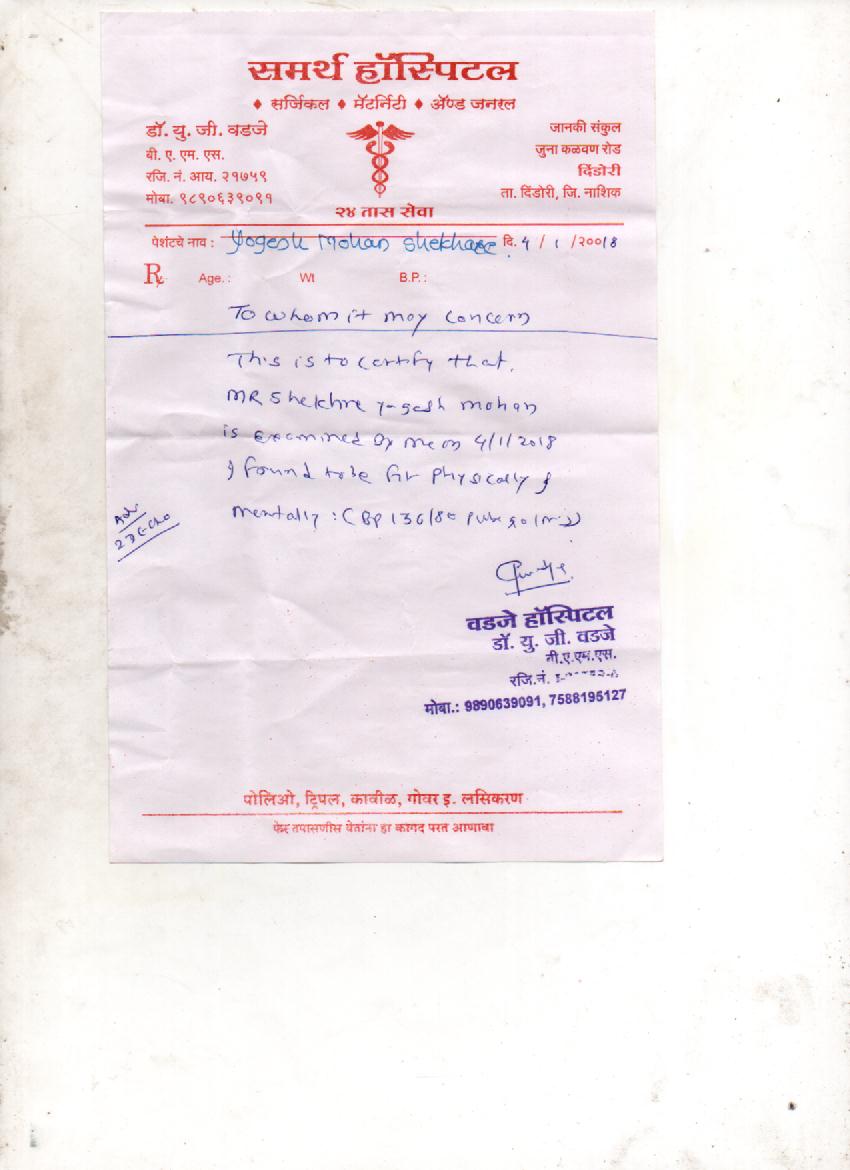 समर्थ हॉस्पिटल
♦ सर्जिकल ♦ मॅटर्निटी ♦ ॲण्ड जनरल
डॉ. यु. जी. वडजे
बी. ए. एम. एस.
रजि. नं. आय. २१७५९
मोबा. ९८९०६३९०९१
जानकी संकुल
जुना कळवण रोड
दिंडोरी
ता. दिंडोरी, जि. नाशिक
२४ तास सेवा
पेशंटचे नाव : Yogesh Mohan Shekhare. दि. 4 / 1 / २००18
Rx Age. : Wt B.P. :
To whom it may concern
This is to certify that,
MR Shekhre yogesh mohan
is examined by me on 4/1/2018
& found to be fit Physically &
mentally : ( BP 136/80 Pulse
Adv
2D Echo
वडजे हॉस्पिटल
डॉ. यु. जी. वडजे
बी.ए.एम.एस.
रजि.नं.
मोबा.: 9890639091, 7588195127
पोलिओ, ट्रिपल, कावीळ, गोवर इ. लसिकरण
फेर तपासणीस येतांना हा कागद परत आणावा